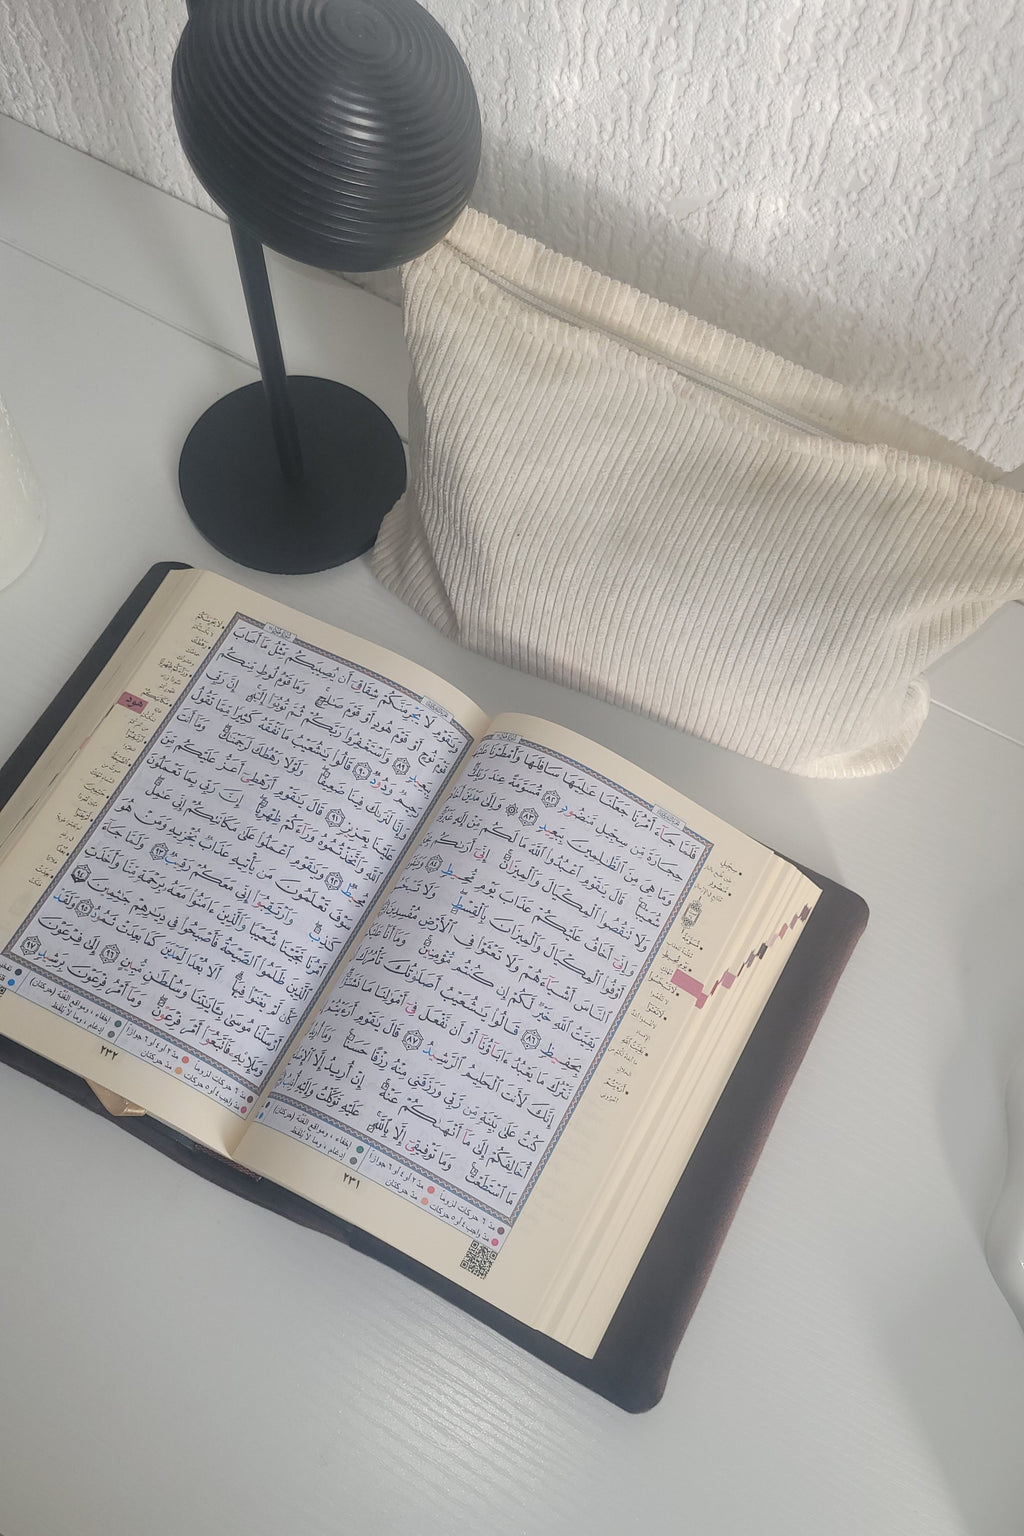 فَلَمَّا جَآءَ أَمْرُنَا جَعَلْنَا عَٰلِيَهَا سَافِلَهَا وَأَمْطَرْنَا عَلَيْهَا
حِجَارَةً مِّن سِجِّيلٍ مَّنضُودٍ ٨٢ مُّسَوَّمَةً عِندَ رَبِّكَ
وَمَا هِىَ مِنَ ٱلظَّٰلِمِينَ بِبَعِيدٍ ٨٣ ۞ وَإِلَىٰ مَدْيَنَ أَخَاهُمْ
شُعَيْبًا ۚ قَالَ يَٰقَوْمِ ٱعْبُدُوا۟ ٱللَّهَ مَا لَكُم مِّنْ إِلَٰهٍ غَيْرُهُۥ ۖ
وَلَا تَنقُصُوا۟ ٱلْمِكْيَالَ وَٱلْمِيزَانَ ۚ إِنِّىٓ أَرَىٰكُم بِخَيْرٍ
وَإِنِّىٓ أَخَافُ عَلَيْكُمْ عَذَابَ يَوْمٍ مُّحِيطٍ ٨٤ وَيَٰقَوْمِ
أَوْفُوا۟ ٱلْمِكْيَالَ وَٱلْمِيزَانَ بِٱلْقِسْطِ ۖ وَلَا تَبْخَسُوا۟
ٱلنَّاسَ أَشْيَآءَهُمْ وَلَا تَعْثَوْا۟ فِى ٱلْأَرْضِ مُفْسِدِينَ ٨٥
بَقِيَّتُ ٱللَّهِ خَيْرٌ لَّكُمْ إِن كُنتُم مُّؤْمِنِينَ ۚ وَمَآ أَنَا۠ عَلَيْكُم
بِحَفِيظٍ ٨٦ قَالُوا۟ يَٰشُعَيْبُ أَصَلَوٰتُكَ تَأْمُرُكَ أَن
نَّتْرُكَ مَا يَعْبُدُ ءَابَآؤُنَآ أَوْ أَن نَّفْعَلَ فِىٓ أَمْوَٰلِنَا مَا نَشَٰٓؤُا۟ ۖ
إِنَّكَ لَأَنتَ ٱلْحَلِيمُ ٱلرَّشِيدُ ٨٧ قَالَ يَٰقَوْمِ أَرَءَيْتُمْ إِن
كُنتُ عَلَىٰ بَيِّنَةٍ مِّن رَّبِّى وَرَزَقَنِى مِنْهُ رِزْقًا حَسَنًا ۚ وَمَآ أُرِيدُ أَنْ
أُخَالِفَكُمْ إِلَىٰ مَآ أَنْهَىٰكُمْ عَنْهُ ۚ إِنْ أُرِيدُ إِلَّا ٱلْإِصْلَٰحَ
مَا ٱسْتَطَعْتُ ۚ وَمَا تَوْفِيقِىٓ إِلَّا بِٱللَّهِ ۚ عَلَيْهِ تَوَكَّلْتُ وَإِلَيْهِ أُنِيبُ
مدّ ٦ حركات لزوماً
مدّ ٢ أو ٤ أو ٦ جوازاً
إخفاء ، ومواقع الغنة (حركتان)
مدّ واجب ٤ أو ٥ حركات
مدّ حركتان
إدغام ، وما لا يلفظ
٢٣١
وَيَٰقَوْمِ لَا يَجْرِمَنَّكُمْ شِقَاقِىٓ أَن يُصِيبَكُم مِّثْلُ مَآ أَصَابَ
قَوْمَ نُوحٍ أَوْ قَوْمَ هُودٍ أَوْ قَوْمَ صَٰلِحٍ ۚ وَمَا قَوْمُ لُوطٍ مِّنكُم
بِبَعِيدٍ ٨٩ وَٱسْتَغْفِرُوا۟ رَبَّكُمْ ثُمَّ تُوبُوٓا۟ إِلَيْهِ ۚ إِنَّ رَبِّى
رَحِيمٌ وَدُودٌ ٩٠ قَالُوا۟ يَٰشُعَيْبُ مَا نَفْقَهُ كَثِيرًا مِّمَّا تَقُولُ
وَإِنَّا لَنَرَىٰكَ فِينَا ضَعِيفًا ۖ وَلَوْلَا رَهْطُكَ لَرَجَمْنَٰكَ ۖ وَمَآ أَنتَ
عَلَيْنَا بِعَزِيزٍ ٩١ قَالَ يَٰقَوْمِ أَرَهْطِىٓ أَعَزُّ عَلَيْكُم مِّنَ
ٱللَّهِ وَٱتَّخَذْتُمُوهُ وَرَآءَكُمْ ظِهْرِيًّا ۖ إِنَّ رَبِّى بِمَا تَعْمَلُونَ
مُحِيطٌ ٩٢ وَيَٰقَوْمِ ٱعْمَلُوا۟ عَلَىٰ مَكَانَتِكُمْ إِنِّى عَٰمِلٌ ۖ
سَوْفَ تَعْلَمُونَ مَن يَأْتِيهِ عَذَابٌ يُخْزِيهِ وَمَنْ هُوَ
كَٰذِبٌ ۖ وَٱرْتَقِبُوٓا۟ إِنِّى مَعَكُمْ رَقِيبٌ ٩٣ وَلَمَّا جَآءَ
أَمْرُنَا نَجَّيْنَا شُعَيْبًا وَٱلَّذِينَ ءَامَنُوا۟ مَعَهُۥ بِرَحْمَةٍ مِّنَّا وَأَخَذَتِ
ٱلَّذِينَ ظَلَمُوا۟ ٱلصَّيْحَةُ فَأَصْبَحُوا۟ فِى دِيَٰرِهِمْ جَٰثِمِينَ ٩٤
كَأَن لَّمْ يَغْنَوْا۟ فِيهَآ ۗ أَلَا بُعْدًا لِّمَدْيَنَ كَمَا بَعِدَتْ ثَمُودُ ٩٥ وَلَقَدْ
أَرْسَلْنَا مُوسَىٰ بِـَٔايَٰتِنَا وَسُلْطَٰنٍ مُّبِينٍ ٩٦ إِلَىٰ فِرْعَوْنَ
وَمَلَإِي۟هِۦ فَٱتَّبَعُوٓا۟ أَمْرَ فِرْعَوْنَ ۖ وَمَآ أَمْرُ فِرْعَوْنَ بِرَشِيدٍ ٩٧
مدّ ٦ حركات لزوماً
مدّ ٢ أو ٤ أو ٦ جوازاً
إخفاء ، ومواقع الغنة (حركتان)
مدّ واجب ٤ أو ٥ حركات
مدّ حركتان
إدغام ، وما لا يلفظ
٢٣٢
هود